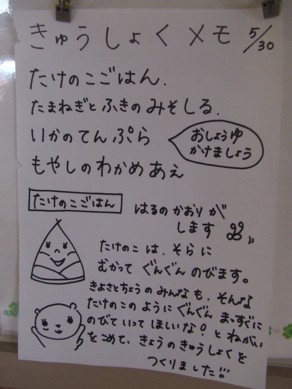 きゅうしょくメモ 5/30
たけのこごはん.
たまねぎとふきのみそしる.
いかのてんぷら
おしょうゆ
かけましょう
もやしのわかめあえ
たけのこごはん
はるのかおりが
します
たけのこは、そらに
むかってぐんぐんのびます。
きよさとちょうのみんなも、そんな
たけのこのようにぐんぐんまっすぐに
のびていってほしいな!とねがい
をこめて、きょうのきゅうしょくを
つくりました!!